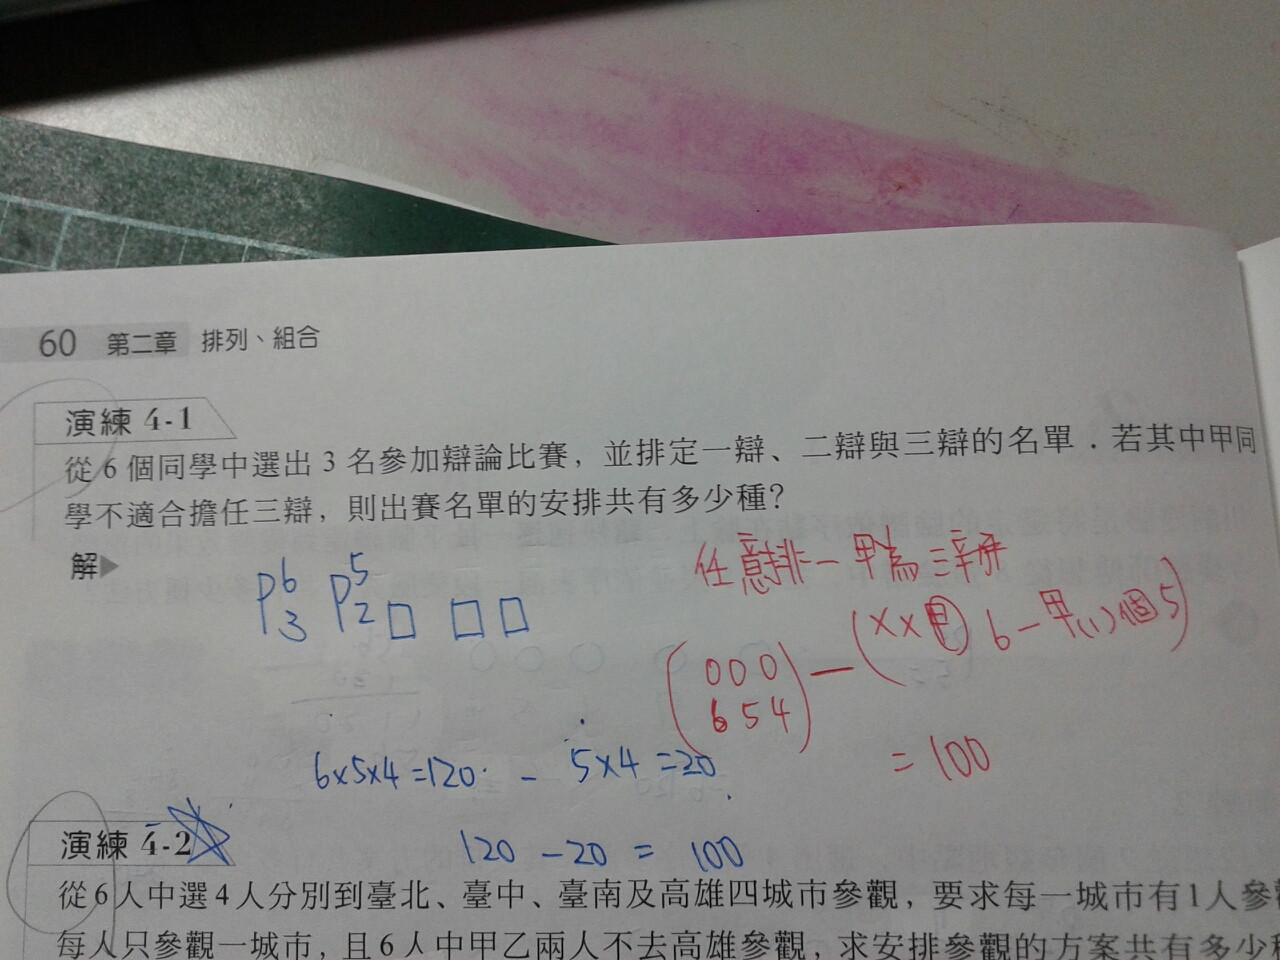 60 第二章 排列、組合
演練 4-1
從 6 個同學中選出 3 名參加辯論比賽，並排定一辯、二辯與三辯的名單．若其中甲同
學不適合擔任三辯，則出賽名單的安排共有多少種？
解▶
P⁶₃ P⁵₂ □ □ □
任意排一甲為三辛冊
(000 654) — (XX甲 6一甲(1)個5)
= 100
6×5×4=120 - 5×4=20
120 - 20 = 100
演練 4-2
從 6 人中選 4 人分別到臺北、臺中、臺南及高雄四城市參觀，要求每一城市有 1 人參
每人只參觀一城市，且 6 人中甲乙兩人不去高雄參觀，求安排參觀的方案共有多少